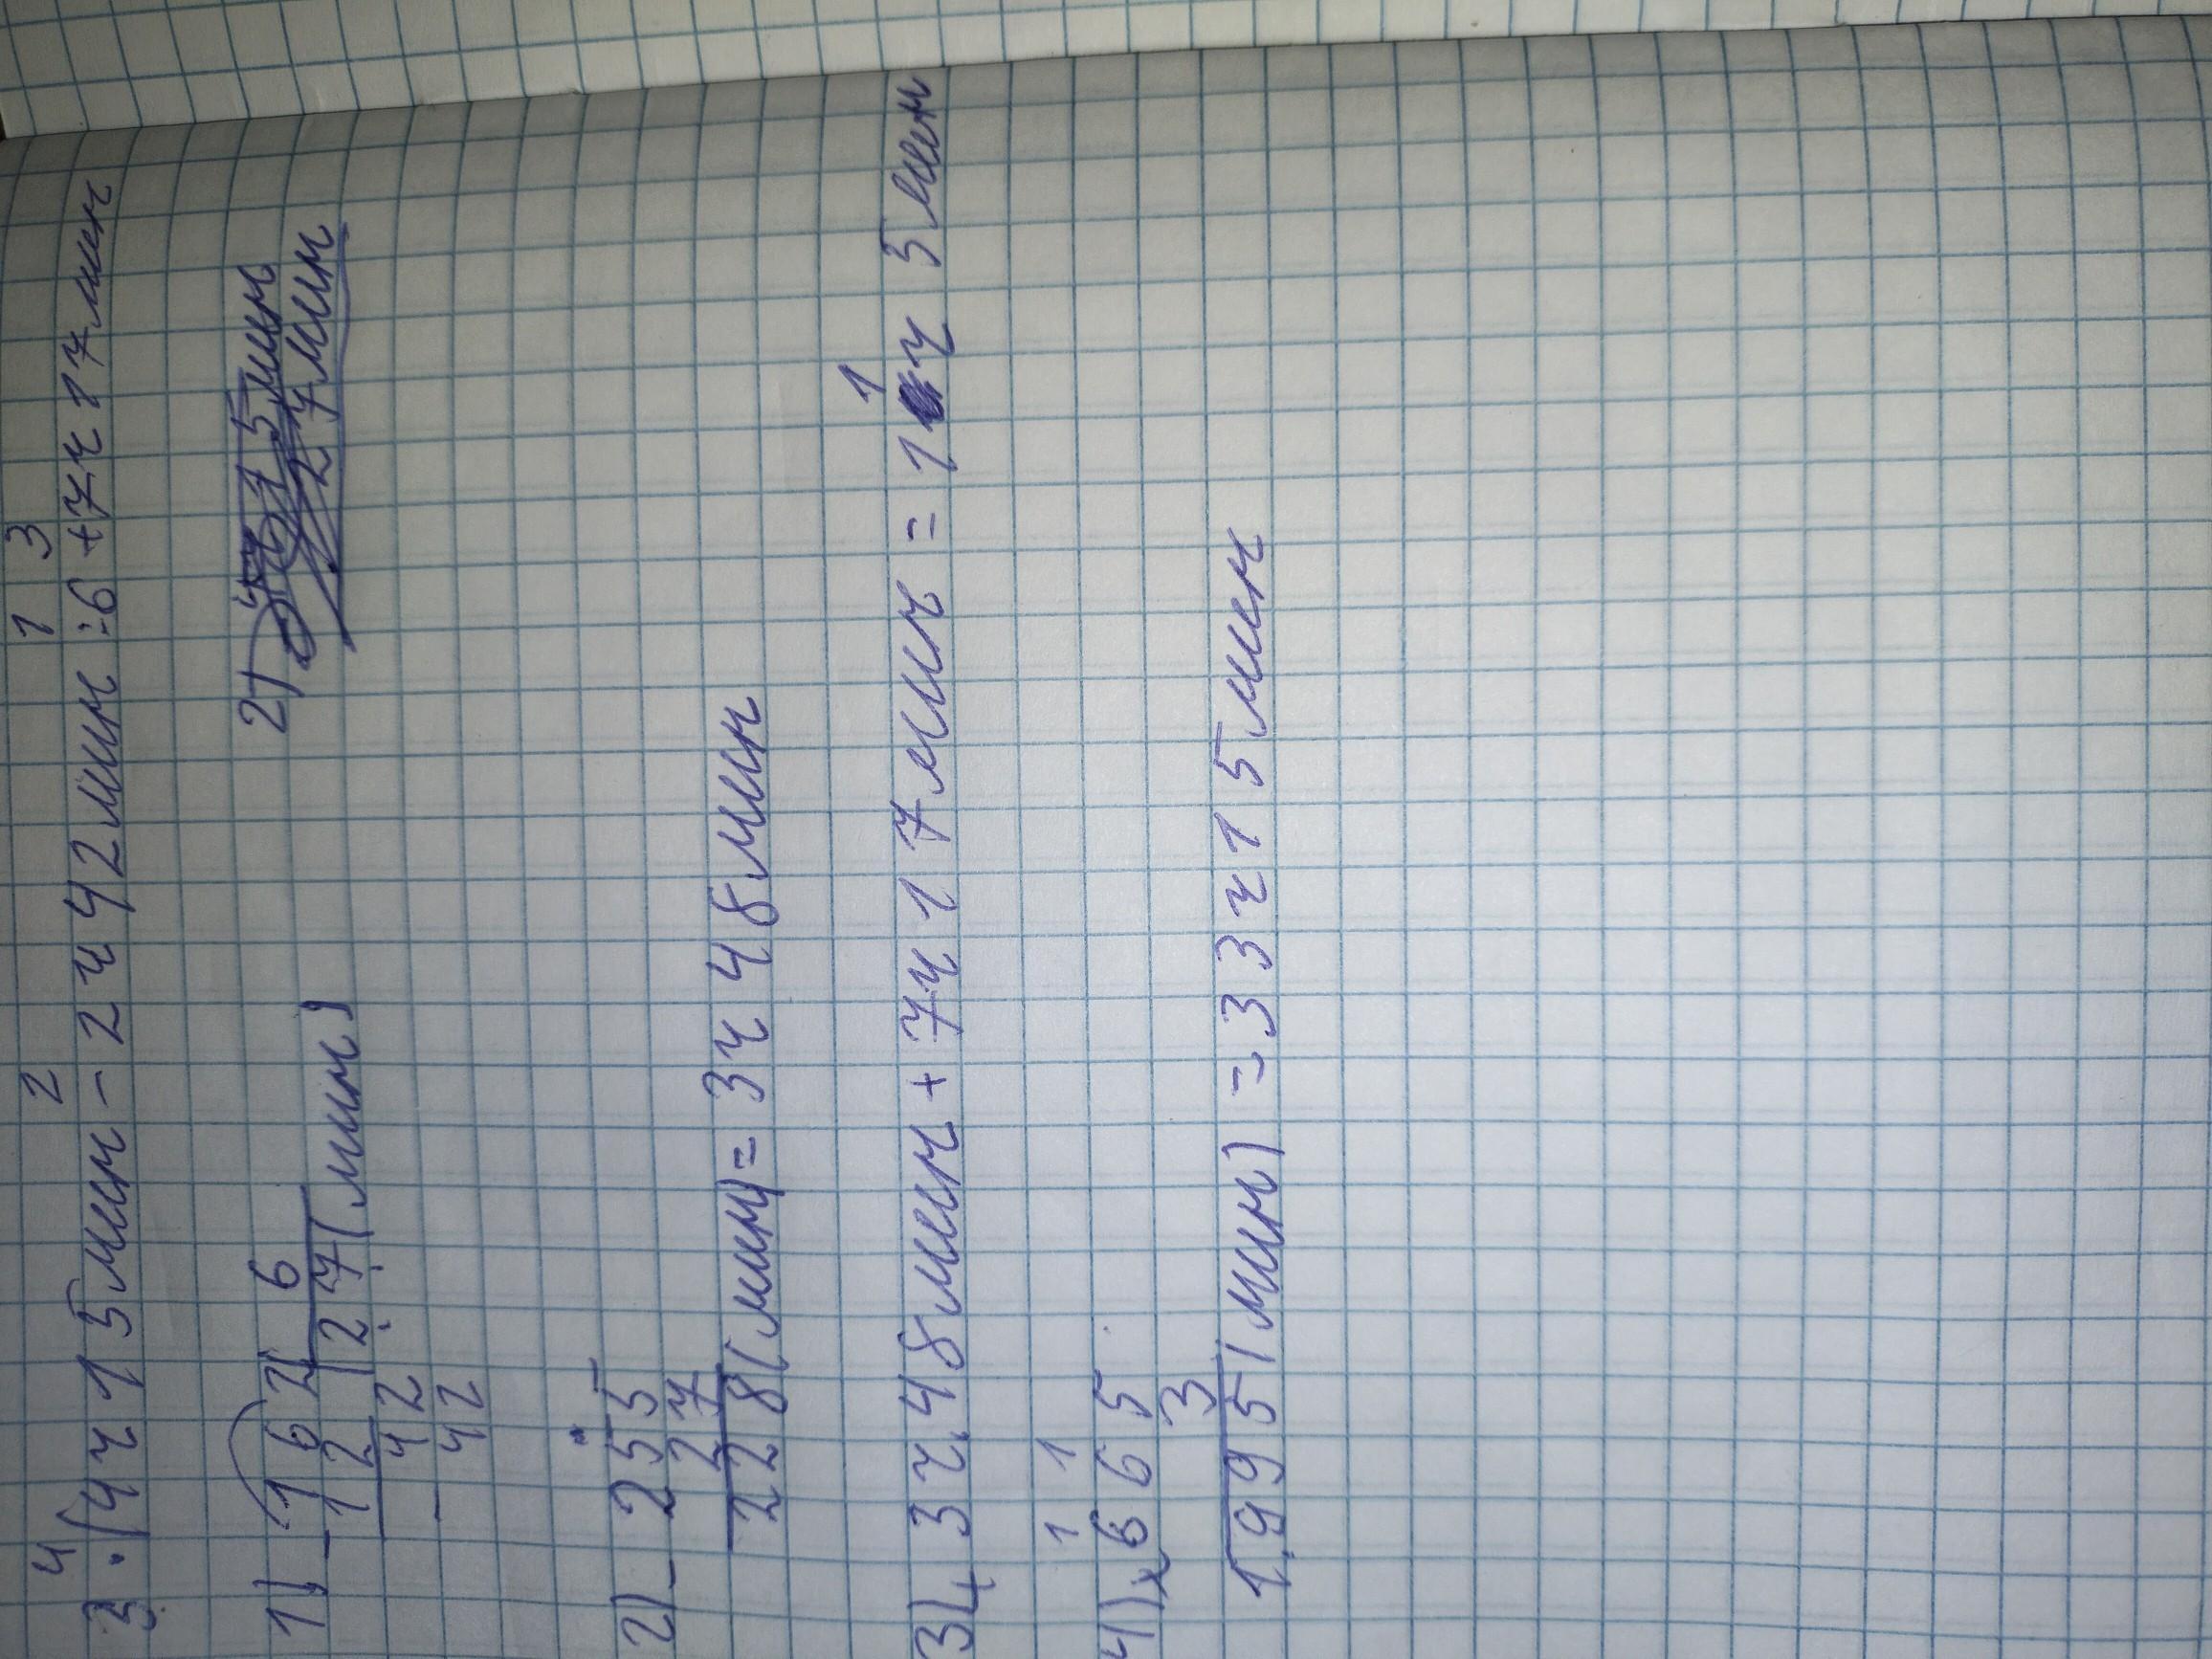 4 2 1 3
3·(4ч 15 мин - 2ч 42 мин :6 +7ч 17 мин
1) - 162 | 6
12 | 27 (мин)
42
- 42
2) 
5 мин
27 мин
2) - 255
27
228 (мин) = 3ч 48 мин
3) + 3ч. 48 мин + 7ч 17 мин = 11 ч 5 мин
1 1
4) × 665
3
1995 (мин) = 33ч 15 мин